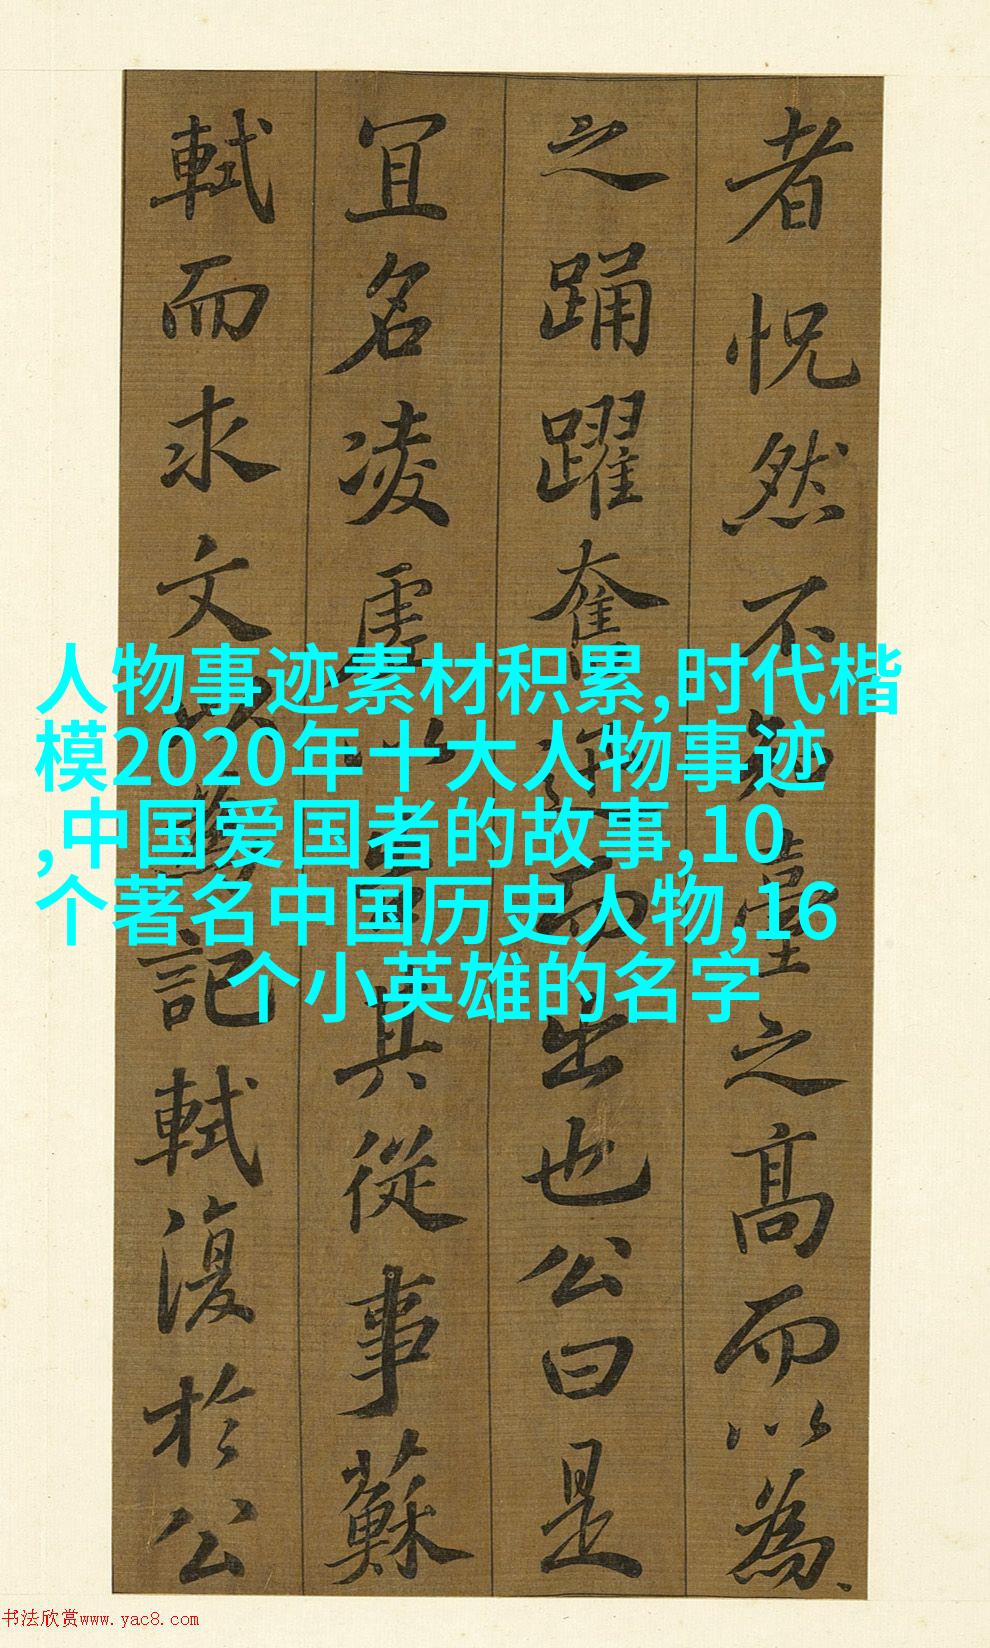 者怳然不知臺之高而以為
之踊躍奮迅而出也公曰是
宜名凌虛以告其從事蘇
軾而求文以為記軾復於公
人物事迹素材积累,时代楷
模2020年十大人物事迹
,中国爱国者的故事,10
个著名中国历史人物,16
个小英雄的名字
书法欣赏www.yac8.com